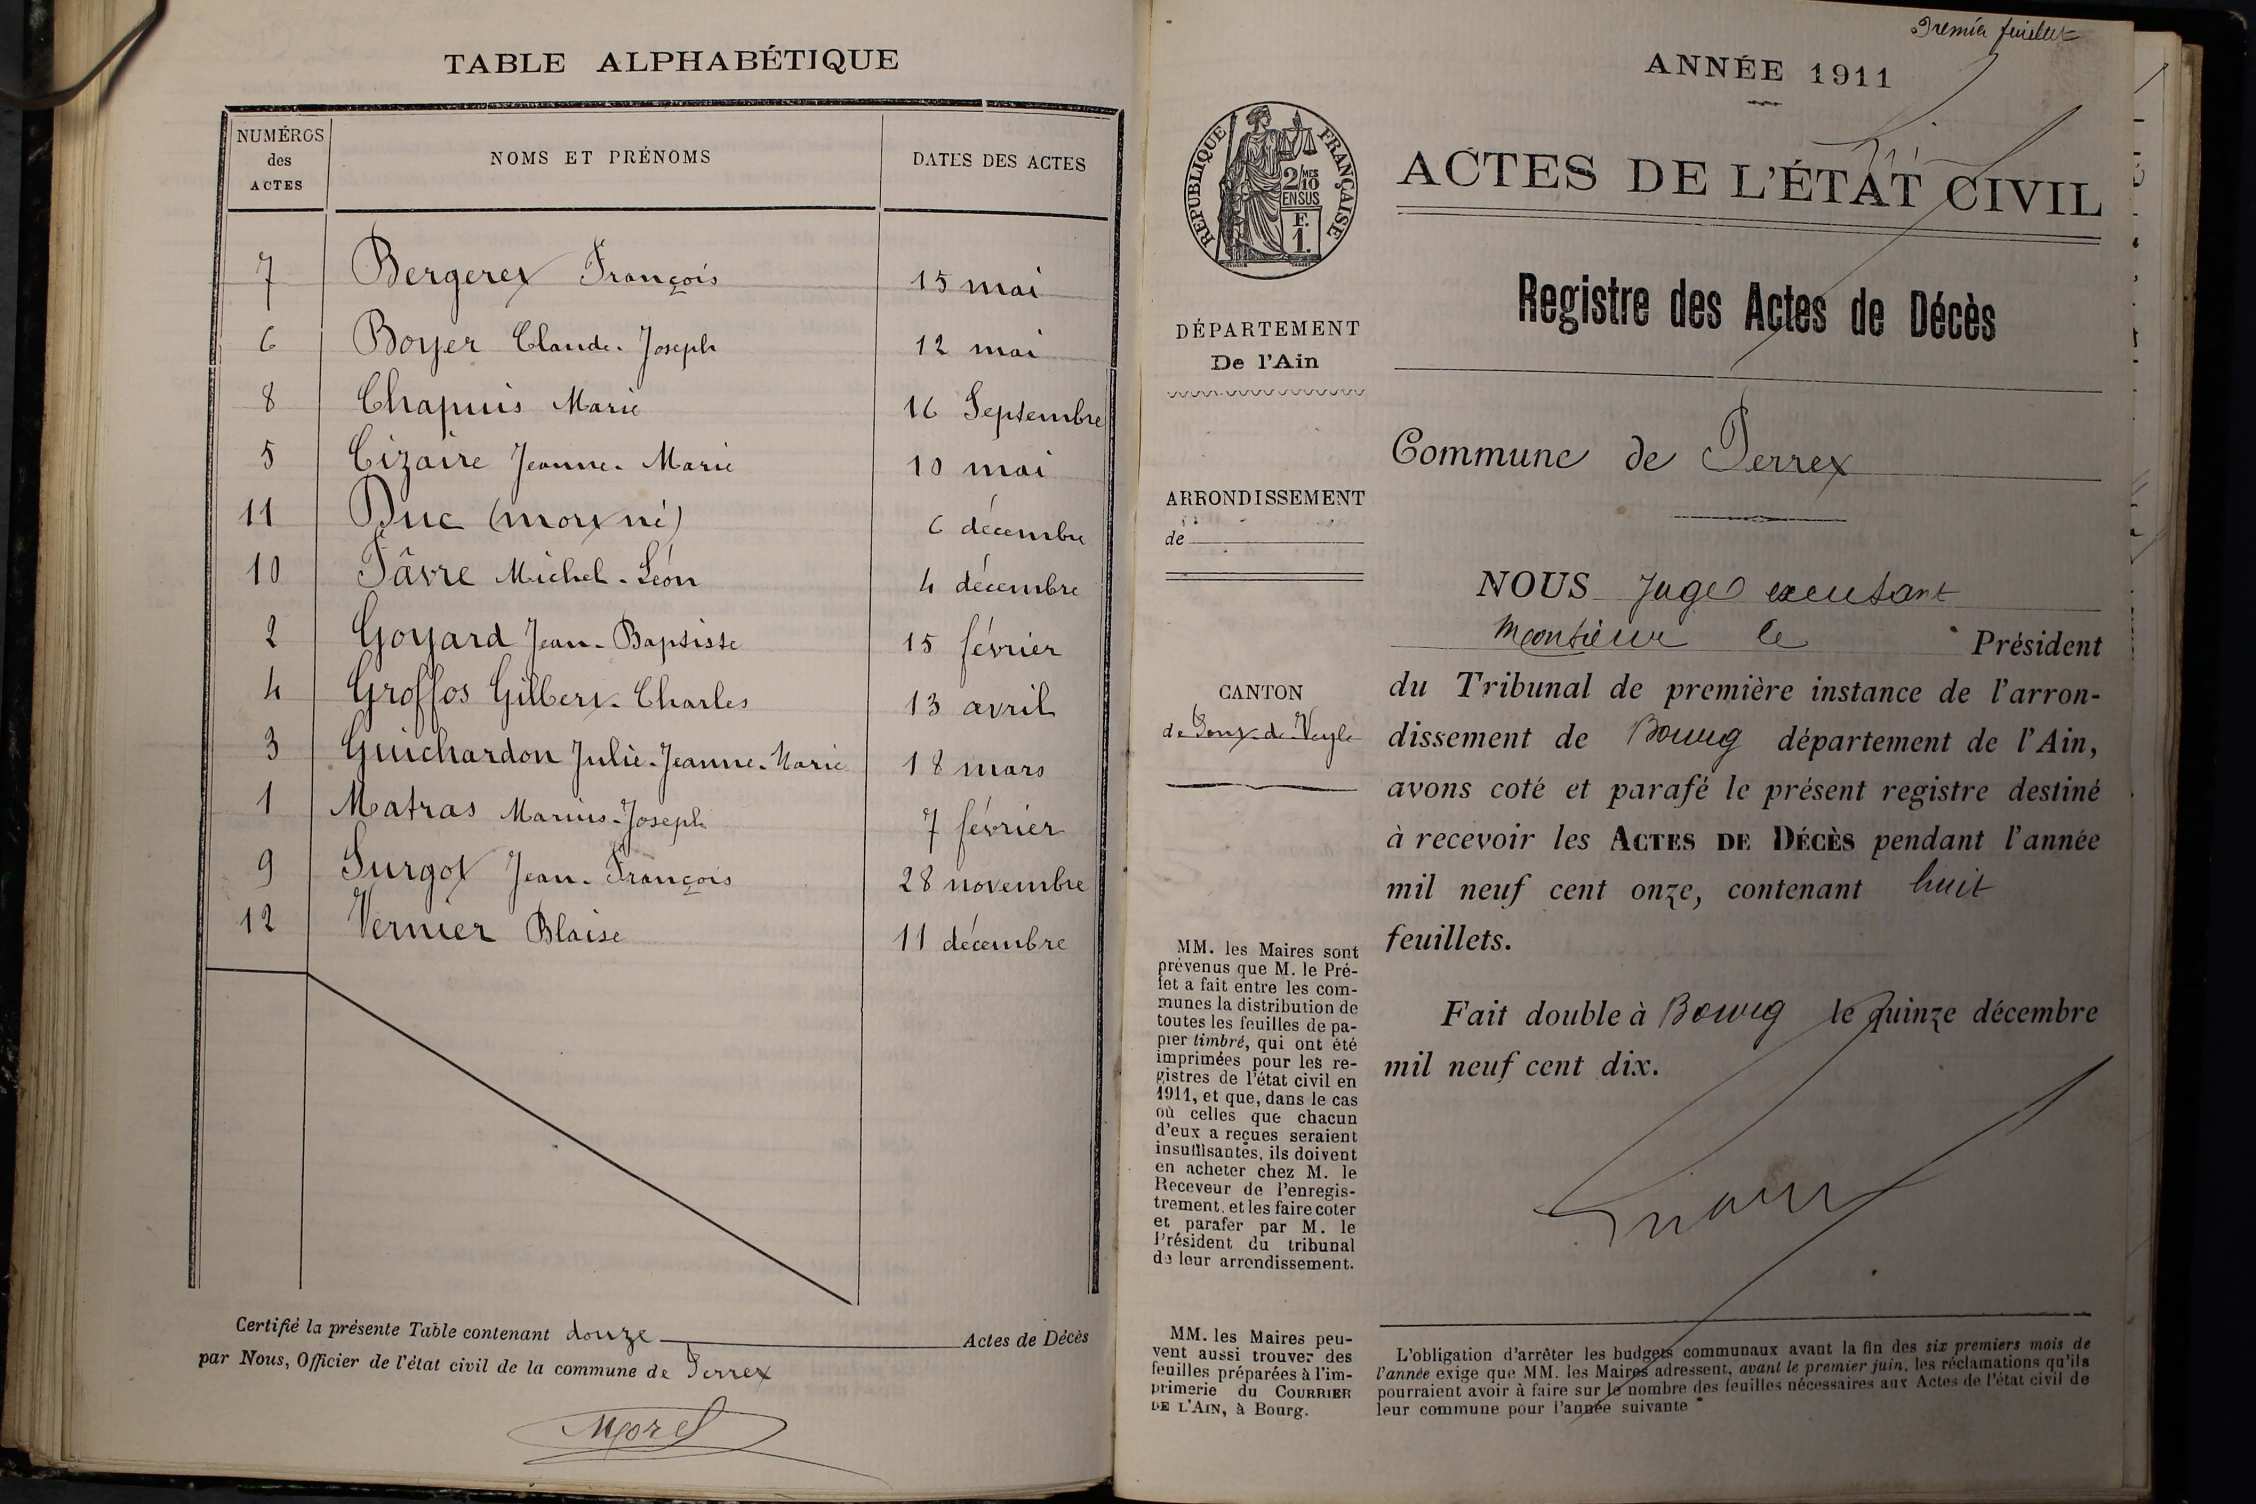 TABLE ALPHABÉTIQUE
NUMÉROS
des
ACTES
NOMS ET PRÉNOMS
DATES DES ACTES
7 Bergeret François 15 mai
6 Boyer Claude-Joseph 12 mai
8 Chapuis Marie 16 Septembre
5 Cizaire Jeanne-Marie 10 mai
11 Duc (mort né) 6 décembre
10 Fâvre Michel-Léon 4 décembre
2 Goyard Jean-Baptiste 15 février
4 Groffos Gilbert-Charles 13 avril
3 Guichardon Julie-Jeanne-Marie 18 mars
1 Matras Marius-Joseph 7 février
9 Surgot Jean-François 28 novembre
12 Vernier Blaise 11 décembre
Certifié la présente Table contenant douze Actes de Décès
par Nous, Officier de l'état civil de la commune de Perrex
Morel
Premier feuillet
ANNÉE 1911
RÉPUBLIQUE FRANÇAISE
2/10 MES
EN SUS
F.
1.
ACTES DE L'ÉTAT CIVIL
Registre des Actes de Décès
DÉPARTEMENT
De l'Ain
Commune de Perrex
ARRONDISSEMENT
de
CANTON
de Pont-de-Veyle
NOUS Juge
Monsieur le Président
du Tribunal de première instance de l'arron-
dissement de Bourg département de l'Ain,
avons coté et parafé le présent registre destiné
à recevoir les ACTES DE DÉCÈS pendant l'année
mil neuf cent onze, contenant huit
feuillets.
Fait double à Bourg le quinze décembre
mil neuf cent dix.
MM. les Maires sont
prévenus que M. le Pré-
fet a fait entre les com-
munes la distribution de
toutes les feuilles de pa-
pier timbré, qui ont été
imprimées pour les re-
gistres de l'état civil en
1911, et que, dans le cas
où celles que chacun
d'eux a reçues seraient
insuffisantes, ils doivent
en acheter chez M. le
Receveur de l'enregis-
trement, et les faire coter
et parafer par M. le
Président du tribunal
de leur arrondissement.
MM. les Maires peu-
vent aussi trouver des
feuilles préparées à l'im-
primerie du COURRIER
DE L'AIN, à Bourg.
L'obligation d'arrêter les budgets communaux avant la fin des six premiers mois de
l'année exige que MM. les Maires adressent, avant le premier juin, les réclamations qu'ils
pourraient avoir à faire sur le nombre des feuilles nécessaires aux Actes de l'état civil de
leur commune pour l'année suivante